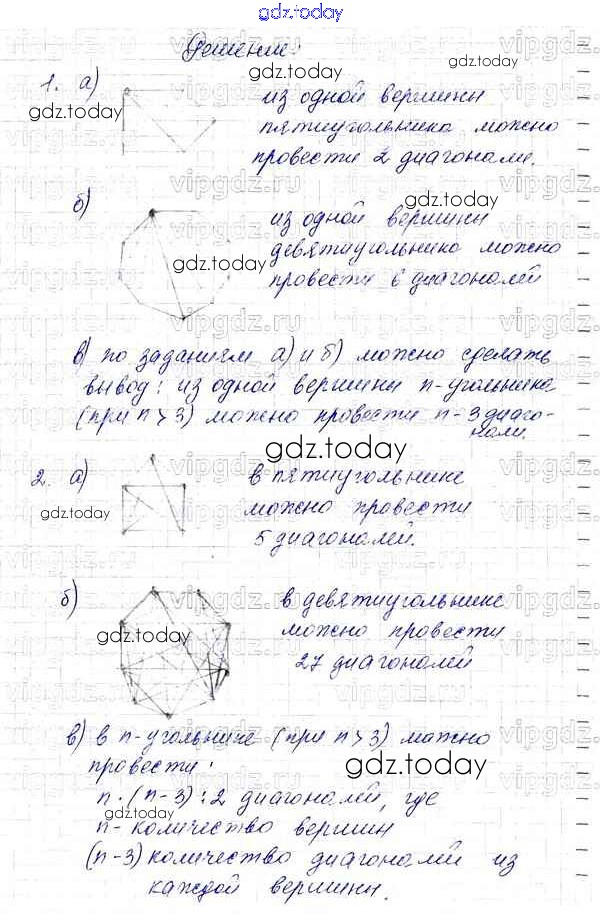 gdz.today
Решение:
1. а)
из одной вершины
пятиугольника можно
провести 2 диагонали.
б)
из одной вершины
девятиугольника можно
провести 6 диагоналей
в) по заданиям а) и б) можно сделать
вывод: из одной вершины n-угольника
(при n > 3) можно провести n-3 диаго-
нали.
gdz.today
2. а)
в пятиугольнике
можно провести
5 диагоналей.
б)
в девятиугольнике
можно провести
27 диагоналей
в) в n-угольнике (при n > 3) можно
провести:
gdz.today
n·(n-3):2 диагоналей, где
n- количество вершин
(n-3) количество диагоналей из
каждой вершины.